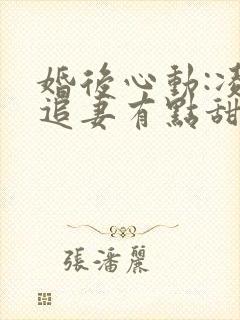 婚後心動:凌
追妻有點甜
張潘麗